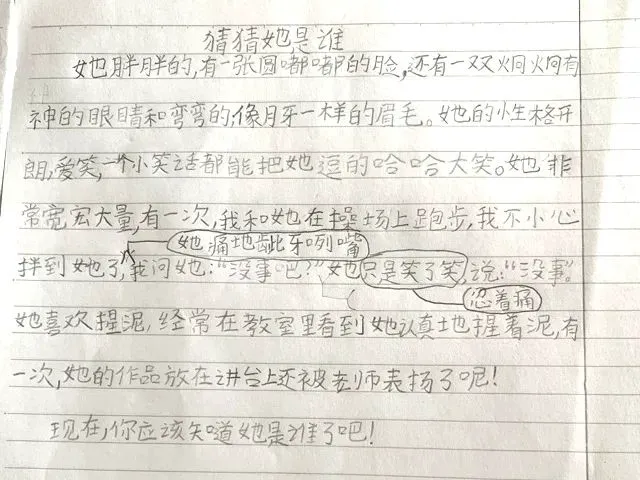 猜猜她是谁
她胖胖的,有一张圆嘟嘟的脸,还有一双炯炯有
神的眼睛和弯弯的,像月牙一样的眉毛。她的性格开
朗,爱笑,一个小笑话都能把她逗的哈哈大笑。她非
常宽宏大量,有一次,我和她在操场上跑步,我不小心
她痛地龇牙咧嘴
拌到她了,我问她:“没事吧?”她只是笑了笑,说:“没事”。
忍着痛
她喜欢捏泥,经常在教室里看到她认真地捏着泥,有
一次,她的作品放在讲台上还被老师表扬了呢!
现在,你应该知道她是谁了吧!